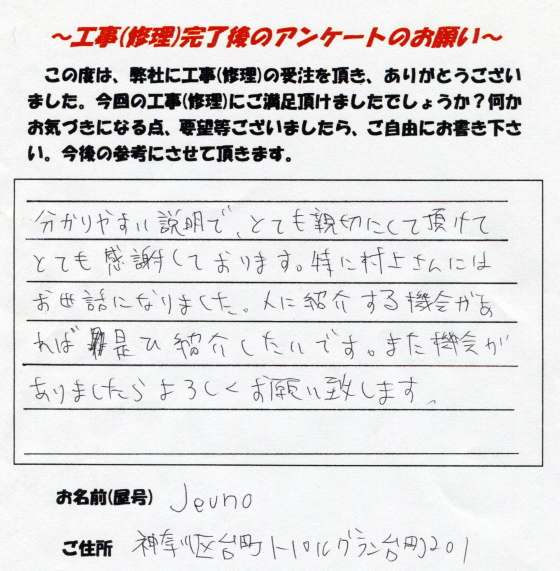 ～工事(修理)完了後のアンケートのお願い～
この度は、弊社に工事(修理)の受注を頂き、ありがとうござい
ました。今回の工事(修理)にご満足頂けましたでしょうか？何か
お気づきになる点、要望等ございましたら、ご自由にお書き下さ
い。今後の参考にさせて頂きます。
分かりやすい説明で、とても親切にして頂けて
とても感謝しております。特に村上さんには
お世話になりました。人に紹介する機会があ
れば是ひ紹介したいです。また機会が
ありましたらよろしくお願い致します。
お名前(屋号) Jeuno
ご住所 神奈川区台町 グラン台町201